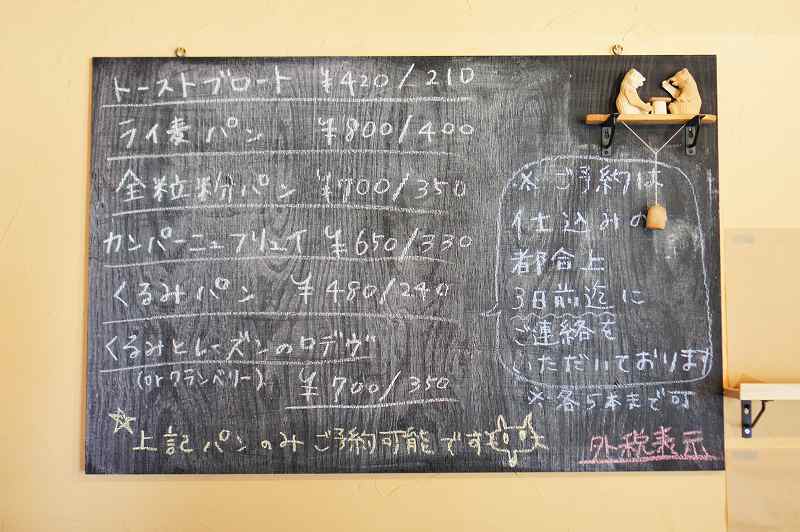 トーストブロート ¥420/210
ライ麦パン ¥800/400
全粒粉パン ¥700/350
カンパーニュフリュイ ¥650/330
くるみパン ¥480/240
くるみとレーズンのロデヴ
(orクランベリー) ¥700/350
☆上記パンのみご予約可能です
※ご予約は
仕込みの
都合上
3日前迄に
ご連絡を
いただいております
※各5本まで可
外税表示